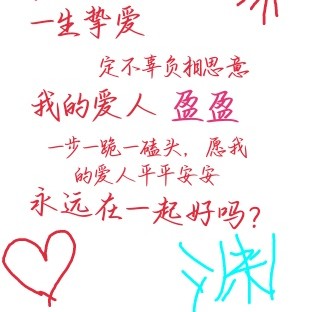 一生挚爱
定不辜负相思意
我的爱人 盈盈
一步一跪一磕头，愿我
的爱人平平安安
永远在一起好吗？